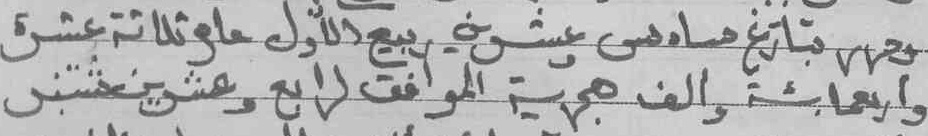 بتاريخ سادس وعشرين ربيع الأول عام ثلاثة عشرة
وأربعمائة وألف هجرية الموافق لرابع وعشرين شتنبر